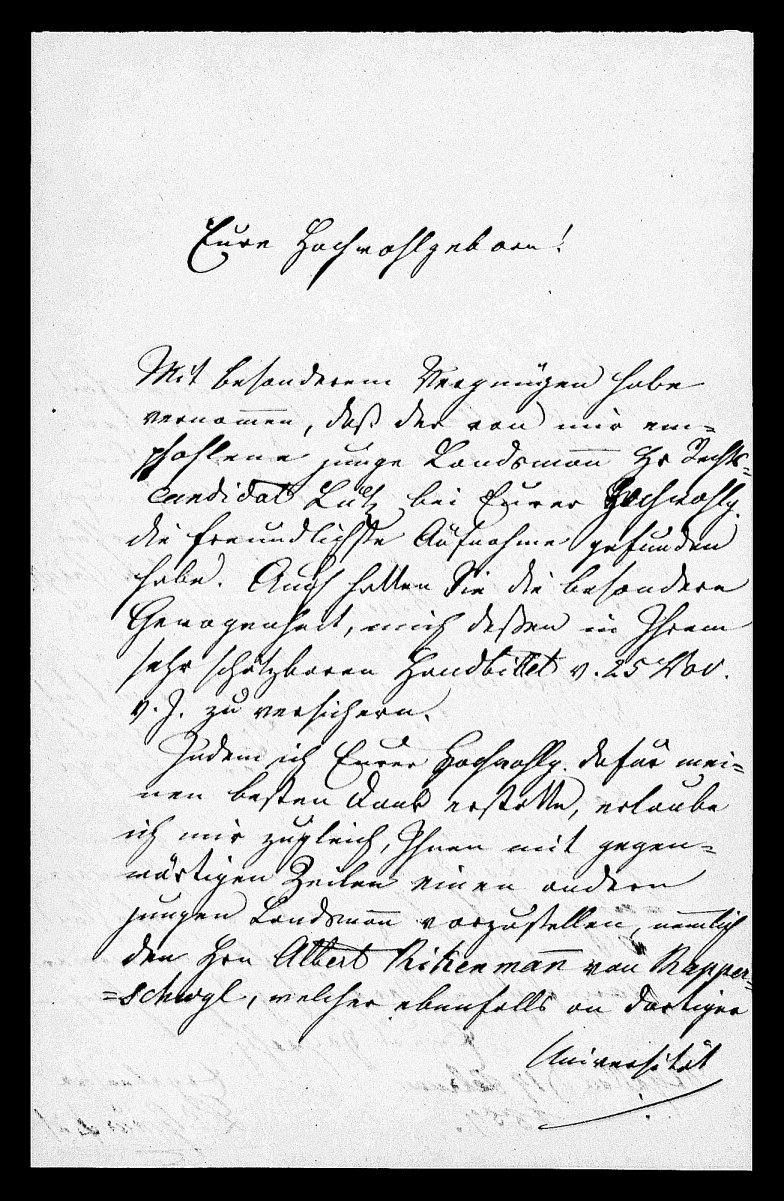 Eure Hochwohlgeborn!
Mit besonderem Vergnügen habe
vernommen, daß der von mir em-
pfohlene junge Landsmann Hr Rechts-
candidat Lutz bei Eurer Hochwohlg.
die freundlichste Aufnahme gefunden
habe. Auch hatten Sie die besondere
Gewogenheit, mich deßen in Ihrem
sehr schätzbaren Handbillet v. 25 Nov.
v. J. zu versichern.
Indem ich Eurer Hochwohlg. dafür mei-
nen besten Dank erstatte, erlaube
ich mir zugleich, Ihnen mit gegen-
wärtigen Zeilen einen andern
jungen Landsmann vorzustellen, nemlich
den Hrn Albert Rikenmann von Rapper-
=schwyl, welcher ebenfalls an dortiger
Universität